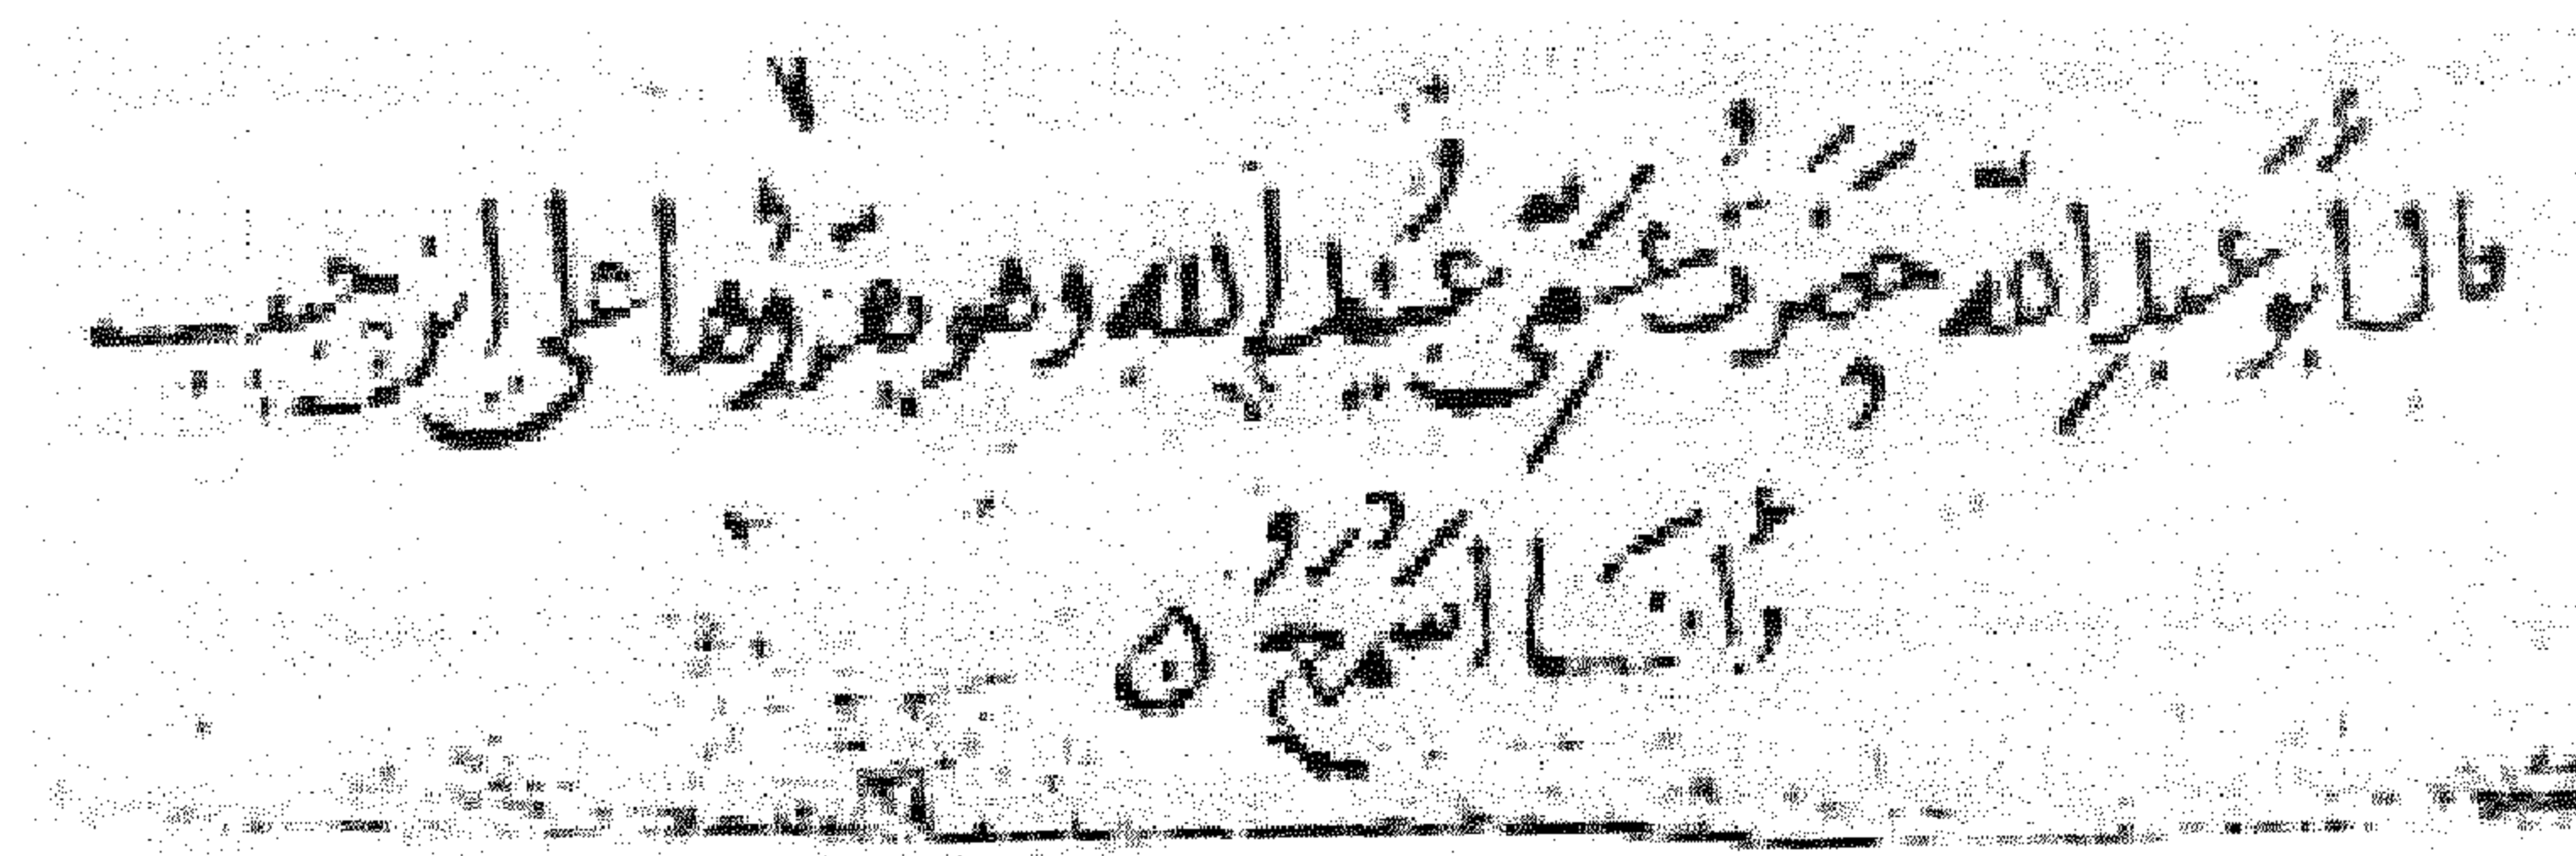 قال ابو عبد الله حضرت عمى عبيد الله وهو يقرؤها على ابن حبيب
وانا اسمع ه